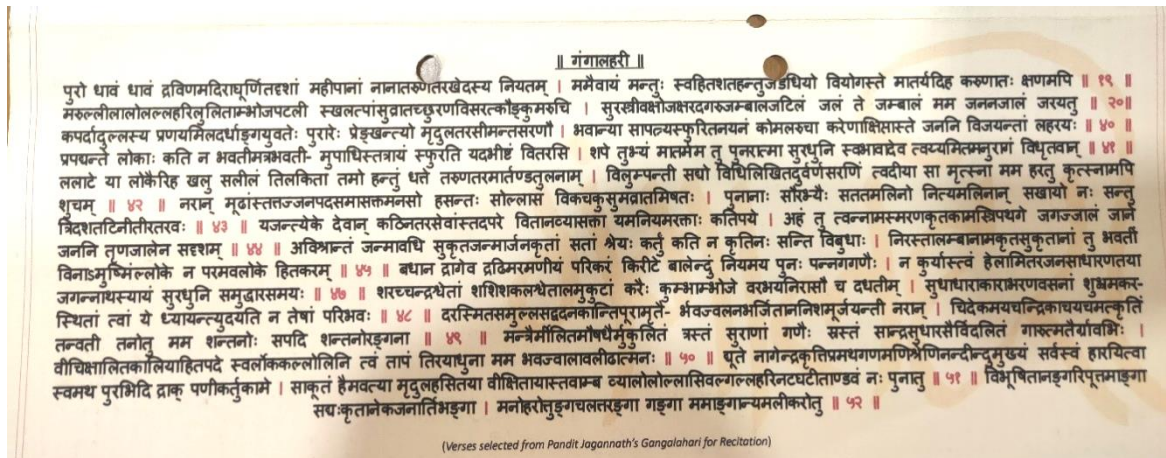 ॥ गंगालहरी ॥
पुरो धावं धावं द्रविणमदिराघूर्णितदृशां महीपानां नानातरुणतरखेदस्य नियतम् । ममैवायं मन्तुः स्वहितशतहन्तुर्जडधियो वियोगस्ते मातर्यदिह करुणातः क्षणमपि ॥ १९ ॥
मरुल्लीलालोलल्लहरिलुलिताम्भोजपटली स्खलत्पांसुव्रातच्छुरणविसरत्कौङ्कुमरुचि । सुरस्त्रीवक्षोजक्षरदगरुजम्बालजटिलं जलं ते जम्बालं मम जननजालं जरयतु ॥ २०॥
कपर्दादुल्लस्य प्रणयमिलदर्धाङ्गयुवतेः पुरारेः प्रेङ्खन्त्यो मृदुलतरसीमन्तसरणौ । भवान्या सापत्न्यस्फुरितनयनं कोमलरुचा करेणाक्षिप्तास्ते जननि विजयन्तां लहरयः ॥ ४० ॥
प्रपद्यन्ते लोकाः कति न भवतीमत्रभवती- मुपाधिस्तत्रायं स्फुरति यदभीष्टं वितरसि । शपे तुभ्यं मातर्मम तु पुनरात्मा सुरधुनि स्वभावादेव त्वय्यमितमनुरागं विधृतवान् ॥ ४१ ॥
ललाटे या लोकैरिह खलु सलीलं तिलकिता तमो हन्तुं धत्ते तरुणतरमार्तण्डतुलनाम् । विलुम्पन्ती सद्यो विधिलिखितदुर्वर्णसरणिं त्वदीया सा मृत्स्ना मम हरतु कृत्स्नामपि
शुचम् ॥ ४२ ॥ नरान् मूढांस्तत्तज्जनपदसमासक्तमनसो हसन्तः सोल्लासं विकचकुसुमव्रातमिषतः । पुनानाः सौरभ्यैः सततमलिनो नित्यमलिनान् सखायो नः सन्तु
त्रिदशतटिनीतीरतरवः ॥ ४३ ॥ यजन्त्येके देवान् कठिनतरसेवांस्तदपरे वितानव्यासक्ता यमनियमरक्ताः कतिपये । अहं तु त्वन्नामस्मरणकृतकामस्त्रिपथगे जगज्जालं जाने
जननि तृणजालेन सदृशम् ॥ ४४ ॥ अविश्रान्तं जन्मावधि सुकृतजन्मार्जनकृतां सतां श्रेयः कर्तुं कति न कृतिनः सन्ति विबुधाः । निरस्तालम्बानामकृतसुकृतानां तु भवतीं
विनाऽमुष्मिंल्लोके न परमवलोके हितकरम् ॥ ४५ ॥ बधान द्रागेव द्रढिमरमणीयं परिकरं किरीटे बालेन्दुं नियमय पुनः पन्नगगणैः । न कुर्यास्त्वं हेलामितरजनसाधारणतया
जगन्नाथस्यायं सुरधुनि समुद्धारसमयः ॥ ४७ ॥ शरच्चन्द्रश्वेतां शशिशकलश्वेतालमुकुटां करैः कुम्भाम्भोजे वरभयनिरासौ च दधतीम् । सुधाधाराकाराभरणवसनां शुभ्रमकर-
स्थितां त्वां ये ध्यायन्त्युदयति न तेषां परिभवः ॥ ४८ ॥ दरस्मितसमुल्लसद्वदनकान्तिपूरामृतै- र्भवज्वलनभर्जिताननिशमूर्जयन्ती नरान् । चिदेकमयचन्द्रिकाचयचमत्कृतिं
तन्वती तनोतु मम शन्तनोः सपदि शन्तनोरङ्गना ॥ ४९ ॥ मन्त्रैर्मीलितमौषधैर्मुकुलितं त्रस्तं सुराणां गणैः स्रस्तं सान्द्रसुधारसैर्विदलितं गारुत्मतैर्ग्रावभिः ।
वीचिक्षालितकालियाहितपदे स्वर्लोककल्लोलिनि त्वं तापं तिरयाधुना मम भवज्वालावलीढात्मनः ॥ ५० ॥ द्यूते नागेन्द्रकृत्तिप्रमथगणमणिश्रेणिनन्दीन्दुमुख्यं सर्वस्वं हारयित्वा
स्वमथ पुरभिदि द्राक् पणीकर्तुकामे । साकूतं हैमवत्या मृदुलहसितया वीक्षितायास्तवाम्ब व्यालोलोल्लासिवल्गल्लहरिनटघटीताण्डवं नः पुनातु ॥ ५१ ॥ विभूषितानङ्गरिपूत्तमाङ्गा
सद्यःकृतानेकजनार्तिभङ्गा । मनोहरोत्तुङ्गचलत्तरङ्गा गङ्गा ममाङ्गान्यमलीकरोतु ॥ ५२ ॥
(Verses selected from Pandit Jagannath's Gangalahari for Recitation)